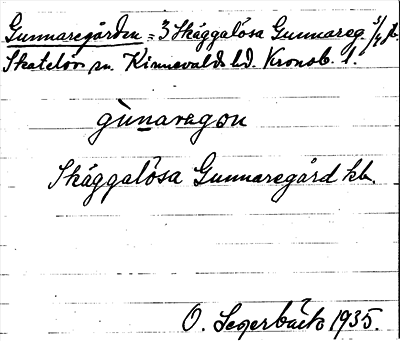 Gunnaregården = 3 Skäggalösa Gunnareg. 3/4 fb.
Skatelöv sn. Kinnevalds hd. Kronob. l.
gùnaragon
Skäggalösa Gunnaregård kb.
O. Segerbäck 1935.